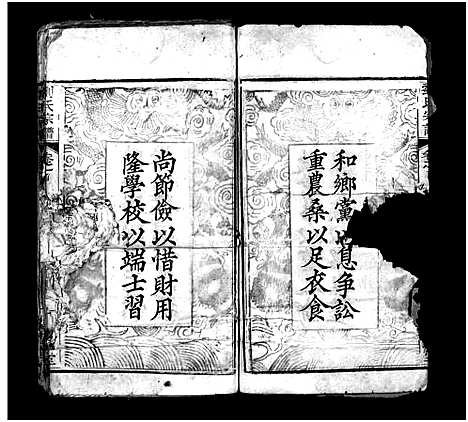 和鄉黨以息争訟
重農桑以足衣食
尚節儉以惜財用
隆學校以端士習
氏宗譜